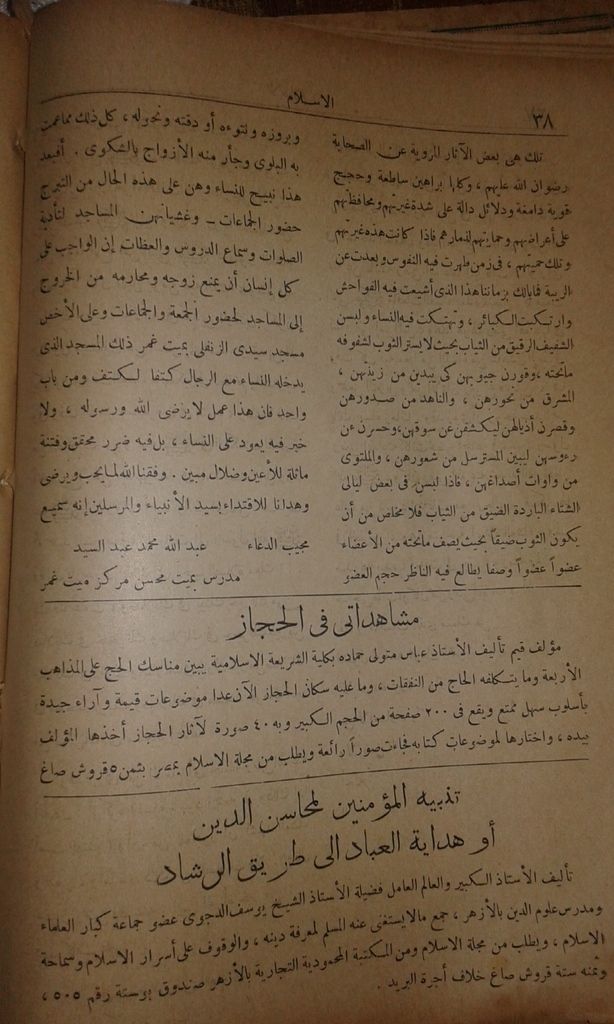 الاسلام
٣٨
تلك هى بعض الآثار المروية عن الصحابة
رضوان الله عليهم ، وكلها براهين ساطعة وحجج
قوية دامغة ودلائل دالة على شدة غيرتهم ومحافظتهم
على أعراضهم وحمايتهم لذمارهم فاذا كانت هذه غيرتهم
وتلك حميتهم ، فى زمن طهرت فيه النفوس وبعدت عن
الريبة فمابالك بزماننا هذا الذى أشيعت فيه الفواحش
وارتكبت الكبائر ، وتهتكت فيه النساء ولبسن
الشفيف الرقيق من الثياب بحيث لا يستر الثوب لشفوفه
ماتحته ، وقورن جيوبهن كى يبدين من زينتهن ،
المشرق من نحورهن ، والناهد من صدورهن
وقصرن أذيالهن ليكشفن عن سوقهن، وحسرن عن
رءوسهن ليبين المسترسل من شعورهن ، والملتوى
من واوات أصداغهن ، فاذا لبسن فى بعض ليالى
الشتاء الباردة الضيق من الثياب فلا مخاص من أن
يكون الثوب ضيقاً بحيث يصف ماتحته من الأعضاء
عضواً عضواً وصفا يطالع فيه الناظر حجم العضو
وبروزه ونتوءه أو دقته ونحوله ، كل ذلك مما عمت
به البلوى وجأر منه الأزواج بالشكوى . أفبعد
هذا نبيح للنساء وهن على هذه الحال من التبرج
حضور الجماعات ـ وغشيانهن المساجد لتأدية
الصلوات وسماع الدروس والعظات إن الواجب على
كل إنسان أن يمنع زوجه ومحارمه من الخروج
إلى المساجد لحضور الجمعة والجماعات وعلى الأخص
مسجد سيدى الزنفلى بميت غمر ذلك المسجد الذى
يدخله النساء مع الرجال كتفا لكتف ومن باب
واحد فان هذا عمل لا يرضى الله ورسوله ، ولا
خير فيه يعود على النساء ، بل فيه ضرر محقق وفتنة
ماثلة للأعين وضلال مبين . وفقنا الله لما يحب ويرضى
وهدانا للاقتداء بسيد الأنبياء والمرسلين إنه سميع
مجيب الدعاء عبد الله محمد عبد السيد
مدرس بميت محسن مركز ميت غمر
مشاهداتى فى الحجاز
مؤلف قيم تأليف الأستاذ عباس متولى حماده بكلية الشريعة الاسلامية يبين مناسك الحج على المذاهب
الأربعة وما يتكلفه الحاج من النفقات ، وما عليه سكان الحجاز الآن عدا موضوعات قيمة وآراء جيدة
بأسلوب سهل ممتع ويقع فى ٢٠٠ صفحة من الحجم الكبير وبه ٤٠ صورة لآثار الحجاز أخذها المؤلف
بيده ، واختارها لموضوعات كتابه فجاءت صوراً رائعة ويطلب من مجلة الاسلام بمصر بثمن ٥ قروش صاغ
تنبيه المؤمنين لمحاسن الدين
أو هداية العباد الى طريق الرشاد
تأليف الأستاذ الكبير والعالم العامل فضيلة الأستاذ الشيخ يوسف الدجوى عضو جماعة كبار العلماء
ومدرس علوم الدين بالأزهر ، جمع مالا يستغنى عنه المسلم لمعرفة دينه ، والوقوف على أسرار الاسلام وسماحة
الاسلام ، ويطلب من مجلة الاسلام ومن المكتبة المحمودية التجارية بالأزهر صندوق بوستة رقم ٥٠٥ ،
وثمنه ستة قروش صاغ خلاف أجرة البريد .